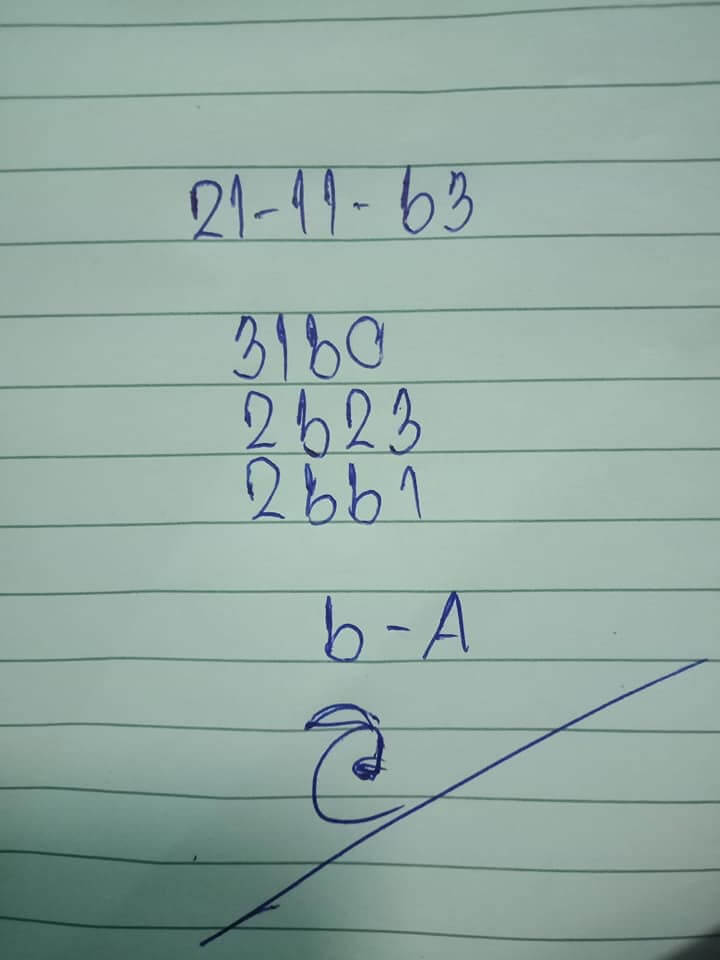 21-11-63
3160
2623
2661
6-A